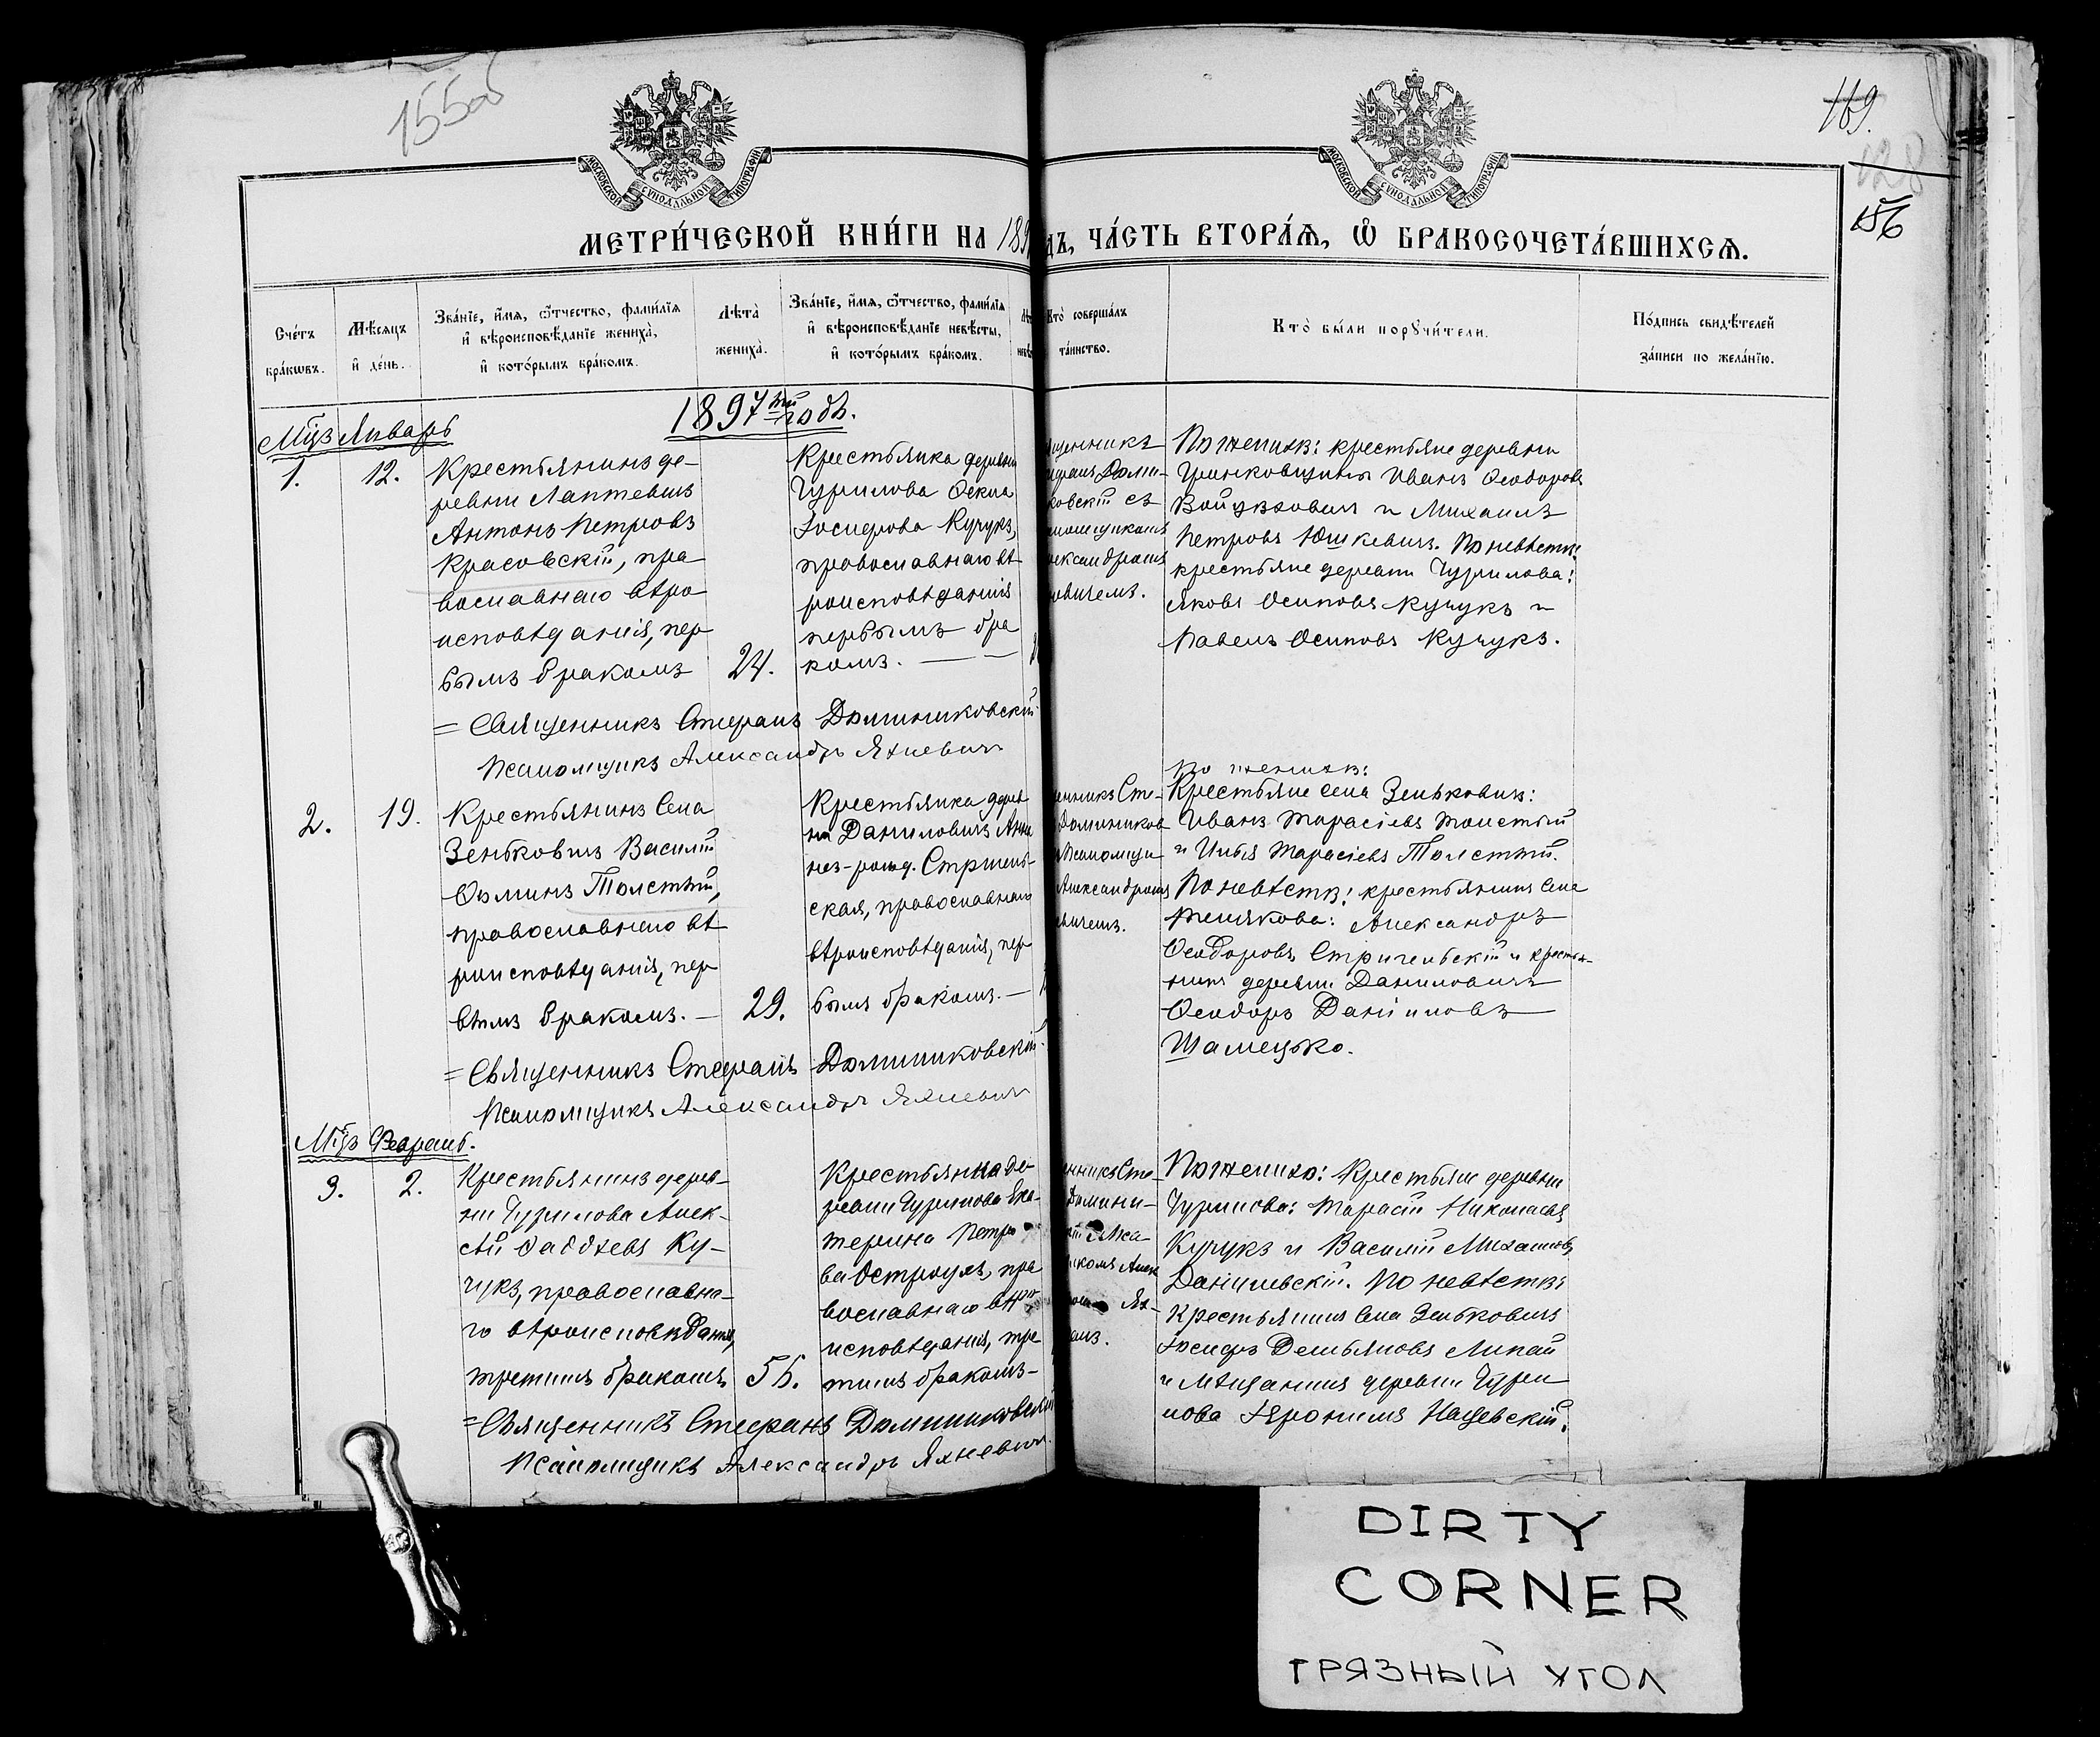 155об
169.
128
156
МОСКОВСКОЙ СУНОДАЛЬНОЙ ТИПОГРАФІИ
МОСКОВСКОЙ СУНОДАЛЬНОЙ ТИПОГРАФІИ
МЕТРИ́ЧЕСКОЙ КНИ́ГИ НА 189
ДЪ, ЧА́СТЬ ВТОРА́Ѧ, Ѡ҆ БРАКОСОЧЕТА́ВШИХСѦ.
Сче́тъ
бра́кѡвъ.
Мѣ́сяцъ
и҆ де́нь.
Зва́нїе, и҆́мѧ, ѻ҆́тчество, фами́лїѧ
и҆ вѣроисповѣ́данїе жениха̀,
и҆ кото́рымъ бра́комъ.
Лѣ́та̀
жениха̀.
Зва́нїе, и҆́мѧ, ѻ҆́тчество, фами́лїѧ
и҆ вѣроисповѣ́данїе невѣ́сты,
и҆ кото́рымъ бра́комъ.
Кто̀ соверша́лъ
та́инство.
Кто̀ бы́ли порꙋчи́тели.
По́дпись свидѣ́телей
за́писи по жела́нїю.
1897ый годъ.
Мцъ Январь
1.
12.
Крестьянинъ де-
ревни Лаптевичъ
Антонъ Петровъ
Красовскій, пра-
вославнаго вѣро
исповѣданія, пер
вымъ бракомъ
24.
Крестьянка деревни
Чурилова Ѳекла
Іосифова Кучукъ,
православнаго вѣ
роисповѣданія
первымъ бра
комъ. — —
щенникъ
ефанъ Доми-
ковскій съ
аломщикомъ
лександромъ
овичемъ.
По женихѣ: крестьяне деревни
Гринковщины Иванъ Ѳеодоровъ
Войцеховичъ и Михаилъ
Петровъ Юшкевичъ. По невѣстѣ:
крестьяне деревни Чурилова:
Яковъ Осиповъ Кучукъ и
Павелъ Осиповъ Кучукъ.
= Священникъ Стефанъ Доминиковскій
Псаломщикъ Александръ Яхневичъ
2.
19.
Крестьянинъ Села
Зеньковичъ Василій
Ѳоминъ Толстый,
православнаго вѣ
роисповѣданія, пер
вымъ бракомъ. —
29.
Крестьянка дерев
ни Даниловичъ Анна
нез-рожд. Стрижель-
ская, православнаго
вѣроисповѣданія, пер
вымъ бракомъ. —
енникъ Сте-
Домиников
Псаломщи-
Александромъ
евичемъ.
По женихѣ:
Крестьяне села Зеньковичъ:
Иванъ Тарасіевъ Толстый
и Илья Тарасіевъ Толстый.
По невѣстѣ: крестьянинъ Села
Телякова: Александръ
Ѳеодоровъ Стричельскій и крестья-
нинъ деревни Даниловичъ
Ѳеодоръ Даніиловъ
Шамецько.
= Священникъ Стефанъ Доминиковскій.
Псаломщикъ Александръ Яхневичъ
Мцъ Февраль.
3.
2.
Крестьянинъ дерев-
ни Чурилова Алек-
сѣй Ѳаддѣевъ Ку-
чукъ, православна-
го вѣроисповѣданія,
третимъ бракомъ
Крестьянка де-
ревни Чурилова Ека-
терина Петро
ва Остроухъ, пра
вославнаго вѣро
исповѣданія, тре
тимъ бракомъ-
нникъ Сте-
Домини-
Пса-
комъ Алек
Ях-
емъ.
По женихѣ: Крестьяне деревни
Чурилова: Тарасій Николаевъ
Кучукъ и Василій Михаиловъ
Данилевскій. По невѣстѣ:
Крестьянинъ Села Зеньковичъ
Іосифъ Демьяновъ Липай
и Мѣщанинъ деревни Чури
лова Іеронимъ Нацевскій.
= Священникъ Стефанъ Доминиковскій
Псаломщикъ Александръ Яхневичъ.
DIRTY
CORNER
ГРЯЗНЫЙ УГОЛ